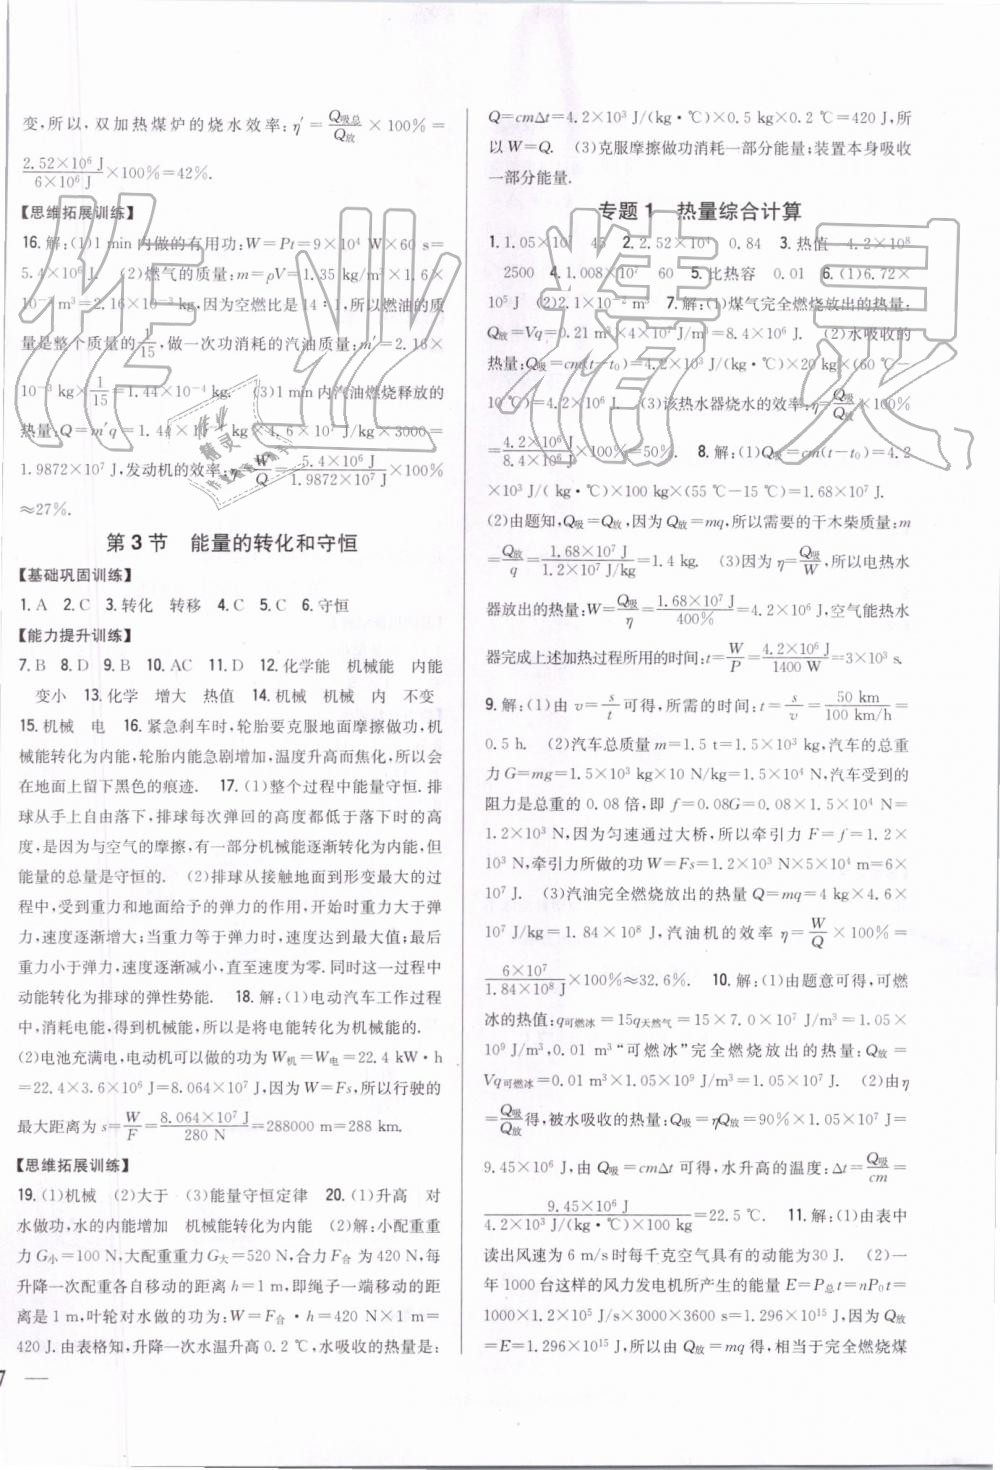 变,所以,双加热煤炉的烧水效率:η′=Q吸总/Q放×100%=
2.52×10⁶ J/6×10⁶ J×100%=42%.
【思维拓展训练】
16.解:(1)1 min内做的有用功:W=Pt=9×10⁴ W×60 s=
5.4×10⁶ J. (2)燃气的质量:m=ρV=1.35 kg/m³×1.6×
10⁻³ m³=2.16×10⁻³ kg,因为空燃比是14∶1,所以燃油的质
量是整个质量的1/15,做一次功消耗的汽油质量:m′=2.16×
10⁻³ kg×1/15=1.44×10⁻⁴ kg. (3)1 min内汽油燃烧释放的
热量:Q=m′q=1.44×10⁻⁴ kg×4.6×10⁷ J/kg×3000=
1.9872×10⁷ J,发动机的效率:η=W/Q=5.4×10⁶ J/1.9872×10⁷ J×100%
≈27%.
第3节 能量的转化和守恒
【基础巩固训练】
1.A 2.C 3.转化 转移 4.C 5.C 6.守恒
【能力提升训练】
7.B 8.D 9.B 10.AC 11.D 12.化学能 机械能 内能
变小 13.化学 增大 热值 14.机械 机械 内 不变
15.机械 电 16.紧急刹车时,轮胎要克服地面摩擦做功,机
械能转化为内能,轮胎内能急剧增加,温度升高而焦化,所以会
在地面上留下黑色的痕迹. 17.(1)整个过程中能量守恒.排
球从手上自由落下,排球每次弹回的高度都低于落下时的高
度,是因为与空气的摩擦,有一部分机械能逐渐转化为内能,但
能量的总量是守恒的. (2)排球从接触地面到形变最大的过
程中,受到重力和地面给予的弹力的作用,开始时重力大于弹
力,速度逐渐增大;当重力等于弹力时,速度达到最大值;最后
重力小于弹力,速度逐渐减小,直至速度为零.同时这一过程中
动能转化为排球的弹性势能. 18.解:(1)电动汽车工作过程
中,消耗电能,得到机械能,所以是将电能转化为机械能的.
(2)电池充满电,电动机可以做的功为W机=W电=22.4 kW·h
=22.4×3.6×10⁶ J=8.064×10⁷ J,因为W=Fs,所以行驶的
最大距离为s=W/F=8.064×10⁷ J/280 N=288000 m=288 km.
【思维拓展训练】
19.(1)机械 (2)大于 (3)能量守恒定律 20.(1)升高 对
水做功,水的内能增加 机械能转化为内能 (2)解:小配重重
力G小=100 N,大配重重力G大=520 N,合力F合为420 N,每
升降一次配重各自移动的距离h=1 m,即绳子一端移动的距
离是1 m,叶轮对水做的功为:W=F合·h=420 N×1 m=
420 J.由表格知,升降一次水温升高0.2 ℃,水吸收的热量是:
7
Q=cmΔt=4.2×10³ J/(kg·℃)×0.5 kg×0.2 ℃=420 J,所
以W=Q. (3)克服摩擦做功消耗一部分能量;装置本身吸收
一部分能量.
专题1 热量综合计算
1.1.05×10⁷ 45 2.2.52×10⁴ 0.84 3.热值 4.2×10⁸
2500 4.1.008×10⁷ 60 5.比热容 0.01 6.(1)6.72×
10⁵ J (2)2.1×10⁻² m³ 7.解:(1)煤气完全燃烧放出的热量:
Q放=Vq=0.21 m³×4×10⁷ J/m³=8.4×10⁶ J. (2)水吸收的
热量:Q吸=cm(t−t₀)=4.2×10³ J/(kg·℃)×20 kg×(60 ℃−
10 ℃)=4.2×10⁶ J. (3)该热水器烧水的效率:η=Q吸/Q放×100%
=4.2×10⁶ J/8.4×10⁶ J×100%=50%. 8.解:(1)Q吸=cm(t−t₀)=4.2
×10³ J/(kg·℃)×100 kg×(55 ℃−15 ℃)=1.68×10⁷ J.
(2)由题知,Q吸=Q放,因为Q放=mq,所以需要的干木柴质量:m
=Q放/q=1.68×10⁷ J/1.2×10⁷ J/kg=1.4 kg. (3)因为η=Q吸/W,所以电热水
器放出的热量:W=Q吸/η=1.68×10⁷ J/400%=4.2×10⁶ J,空气能热水
器完成上述加热过程所用的时间:t=W/P=4.2×10⁶ J/1400 W=3×10³ s.
9.解:(1)由v=s/t可得,所需的时间:t=s/v=50 km/100 km/h=
0.5 h. (2)汽车总质量m=1.5 t=1.5×10³ kg,汽车的总重
力G=mg=1.5×10³ kg×10 N/kg=1.5×10⁴ N,汽车受到的
阻力是总重的0.08倍,即f=0.08G=0.08×1.5×10⁴ N=
1.2×10³ N,因为匀速通过大桥,所以牵引力F=f=1.2×
10³ N,牵引力所做的功W=Fs=1.2×10³ N×5×10⁴ m=6×
10⁷ J. (3)汽油完全燃烧放出的热量Q=mq=4 kg×4.6×
10⁷ J/kg=1.84×10⁸ J,汽油机的效率η=W/Q×100%=
6×10⁷/1.84×10⁸ J×100%≈32.6%. 10.解:(1)由题意可得,可燃
冰的热值:q可燃冰=15q天然气=15×7.0×10⁷ J/m³=1.05×
10⁹ J/m³,0.01 m³“可燃冰”完全燃烧放出的热量:Q放=
Vq可燃冰=0.01 m³×1.05×10⁹ J/m³=1.05×10⁷ J. (2)由η
=Q吸/Q放得,被水吸收的热量:Q吸=ηQ放=90%×1.05×10⁷ J=
9.45×10⁶ J,由Q吸=cmΔt可得,水升高的温度:Δt=Q吸/cm=
9.45×10⁶ J/4.2×10³ J/(kg·℃)×100 kg=22.5 ℃. 11.解:(1)由表中
读出风速为6 m/s时每千克空气具有的动能为30 J. (2)一
年1000台这样的风力发电机所产生的能量E=P总t=nP₀t=
1000×1.2×10⁵ J/s×3000×3600 s=1.296×10¹⁵ J,因为Q放
=E=1.296×10¹⁵ J,所以由Q放=mq得,相当于完全燃烧煤
作业精灵